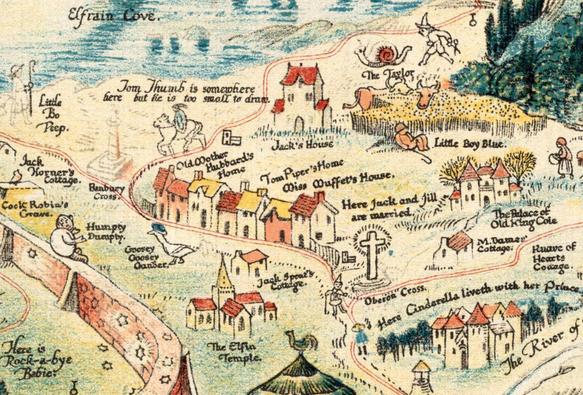 Elfrain Cove.
The Taylor
Tom Thumb is somewhere
here but he is too small to draw.
Little
Bo
Peep.
Jack's House
Little Boy Blue.
Old Mother
Hubbard's
Home
Jack
Horner's
Cottage.
Banbury
Cross.
Tom Piper's Home
Miss Muffet's House.
Cock Robin's
Grave.
Here Jack and Jill
are married.
The Palace of
Old King Cole
Humpty
Dumpty.
Goosey
Goosey
Gander.
M. Dames
Cottage.
Knave of
Hearts
Cottage.
Jack Sprat's
Cottage.
Oberon Cross.
Here Cinderella liveth with her Prince
The Elfin
Temple.
Here is
Rock-a-bye
Babie:
The River of